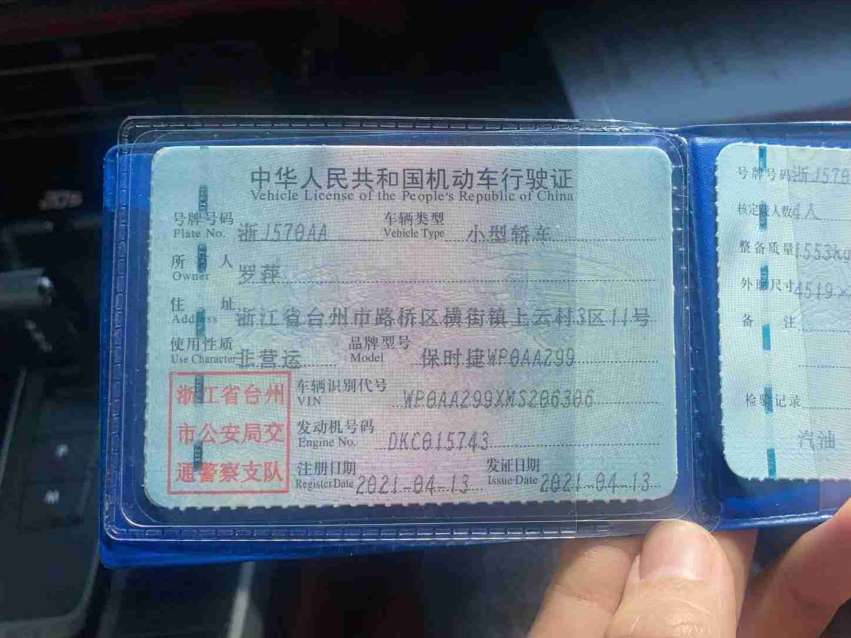 中华人民共和国机动车行驶证
Vehicle License of the People's Republic of China
号牌号码 浙J570AA 车辆类型 小型轿车
Plate No. Vehicle Type
所有人 罗萍
Owner
住址 浙江省台州市路桥区横街镇上云村3区11号
Address
使用性质 非营运 品牌型号 保时捷WP0AAZ99
Use Character Model
浙江省台州
市公安局交
通警察支队
车辆识别代号 WP0AAZ99XMS206306
VIN
发动机号码 DKC015743
Engine No.
注册日期 2021-04-13 发证日期 2021-04-13
Register Date Issue Date
号牌号码 浙J570
核定载人数 4人
整备质量 1553kg
外廓尺寸 4519×
备注
检验记录
汽油